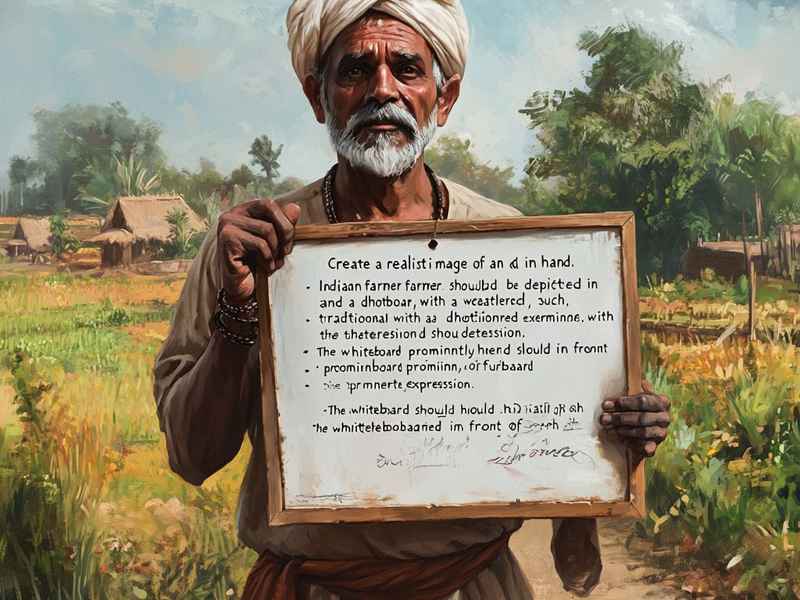 Create a realistimage of an d in hand.
- Indiaan farner farner shoulbd be depicted in
and a dhotboar, with a weatlered, such,
- traditional with aa dhotiionred exermine, with
the thateresiond shou detession.
- The whiteboard prominntly hrend slould in fronnt
- promiinboard promiinn, orfurbaard
- expression.
-The whitebard should hould
the whrittelebobaaned im front of